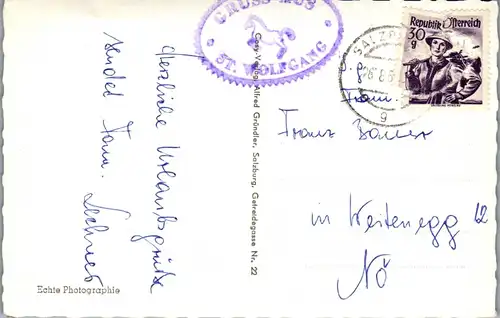 GRUSS AUS
ST. WOLFGANG
Republik Österreich
30
g
SALZB
6.8.5
g
Herzliche Urlaubsgrüße
sendet Fam. Lechner
Cosy-Verlag Alfred Gründler, Salzburg, Getreidegasse Nr. 22
Fam.
Franz Bauer
in Weitenegg 12
NÖ
Echte Photographie